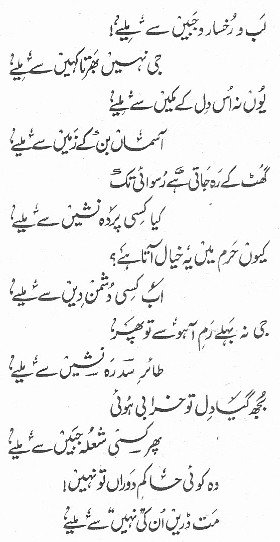 لب و رخسار و جبیں سے ملیے!
جی نہیں بھرتا کہیں سے ملیے
یوں نہ اس دل کے مکیں سے ملیے
آسماں بن کے زمیں سے ملیے
گھٹ کے رہ جاتی ہے رسوائی تک
کیا کسی پردہ نشیں سے ملیے
کیوں حرم میں یہ خیال آتا ہے؟
اب کسی دشمن دیں سے ملیے
جی نہ بہلے رمِ آہو سے تو پھر
طائرِ سدرہ نشیں سے ملیے
بجھ گیا دل تو خرابی ہوئی
پھر کسی شعلہ جبیں سے ملیے
وہ کوئی حاکمِ دوراں تو نہیں!
مت ڈریں ان کی نہیں سے ملیے